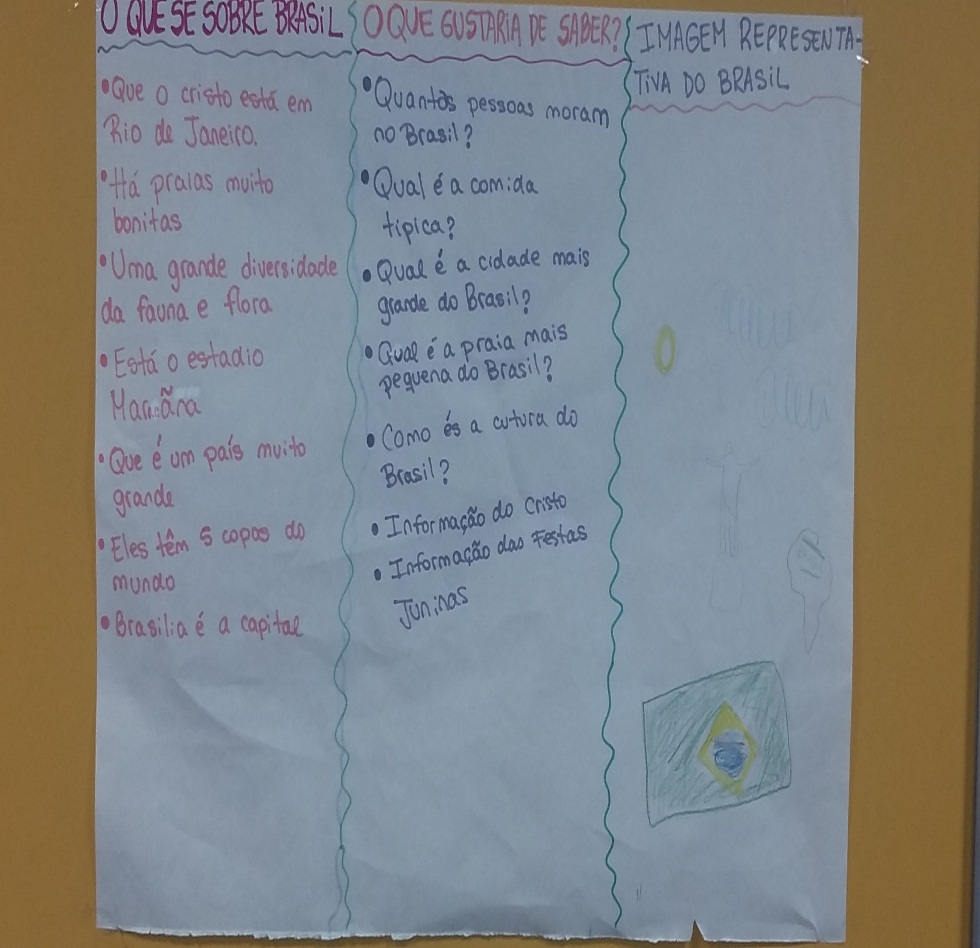 O QUE SE SOBRE BRASIL
• Que o cristo está em
Rio de Janeiro.
• Há praias muito
bonitas
• Uma grande diversidade
da fauna e flora
• Está o estadio
• Que é um país muito
grande
• Eles têm 5 copas do
mundo
• Brasilia é a capital
O QUE GUSTARIA DE SABER?
• Quantas pessoas moram
no Brasil?
• Qual é a comida
tipica?
• Qual é a cidade mais
grande do Brasil?
• Qual é a praia mais
pequena do Brasil?
• Como és a cutura do
Brasil?
• Informação do Cristo
• Informação das Festas
Juninas
IMAGEM REPRESENTA-
TIVA DO BRASIL